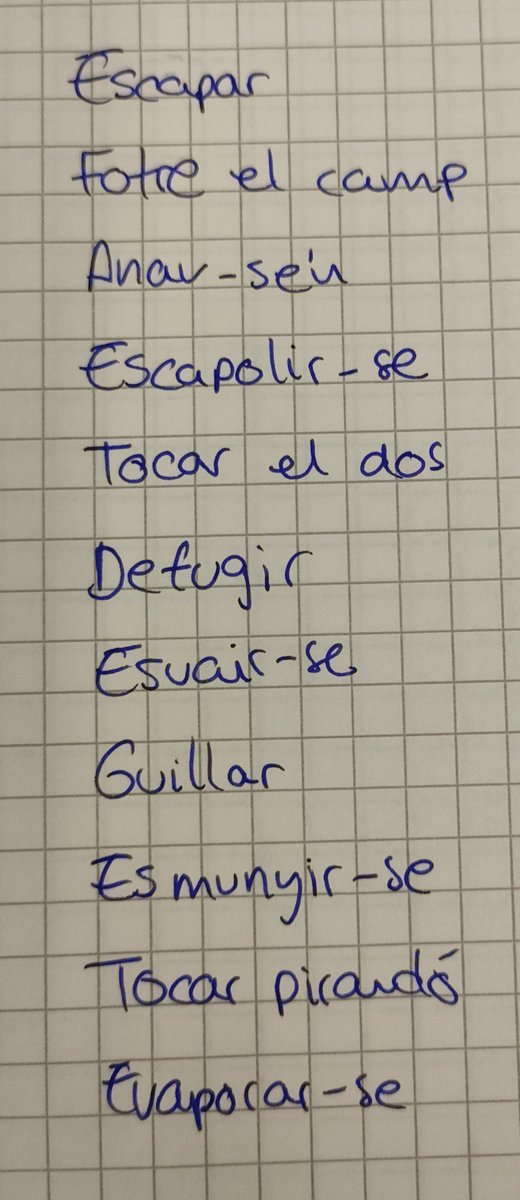 Escapar
Fotre el camp
Anar-se'n
Escapolir-se
Tocar el dos
Defugir
Esvair-se
Guillar
Esmunyir-se
Tocar pirandó
Evaporar-se